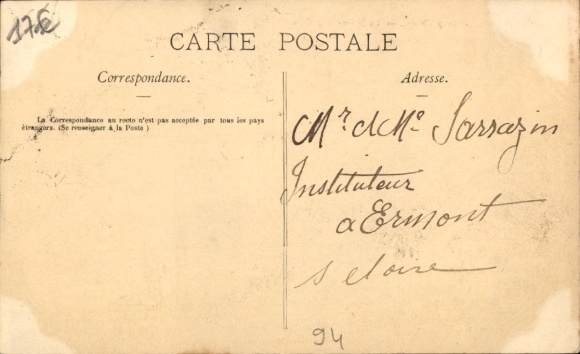 175
CARTE POSTALE
Correspondance.
La Correspondance au recto n'est pas acceptée par tous les pays
étrangers. (Se renseigner à la Poste)
Adresse.
Mr. et Me. Sarrazin
Instituteur
a Ermont
S et oise
94